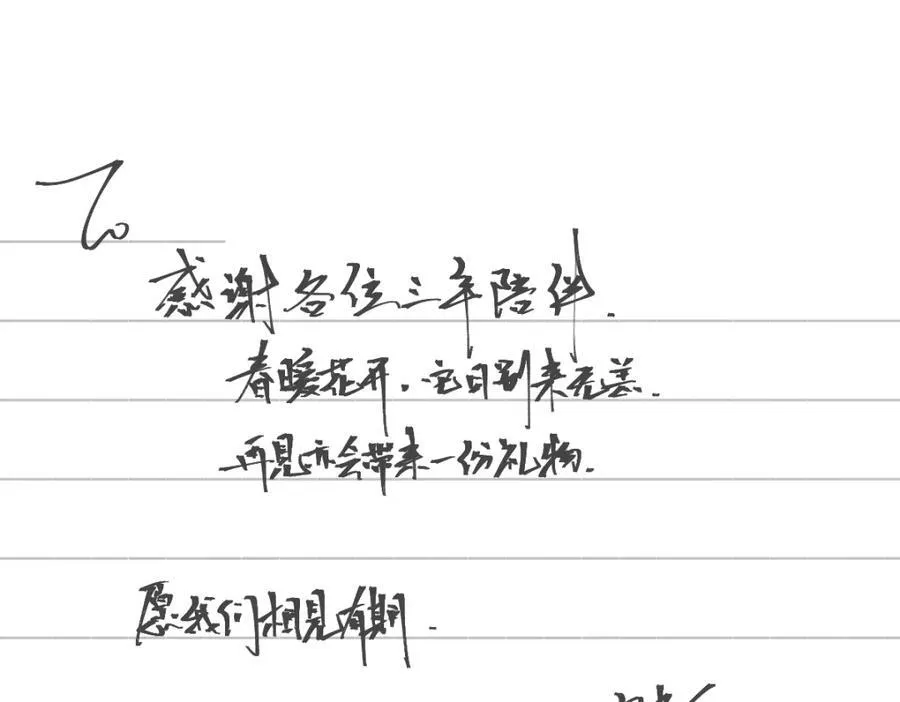 To
感谢各位三年陪伴.
春暖花开.它日别来无恙.
再见亦会带来一份礼物.
愿我们相见有期.